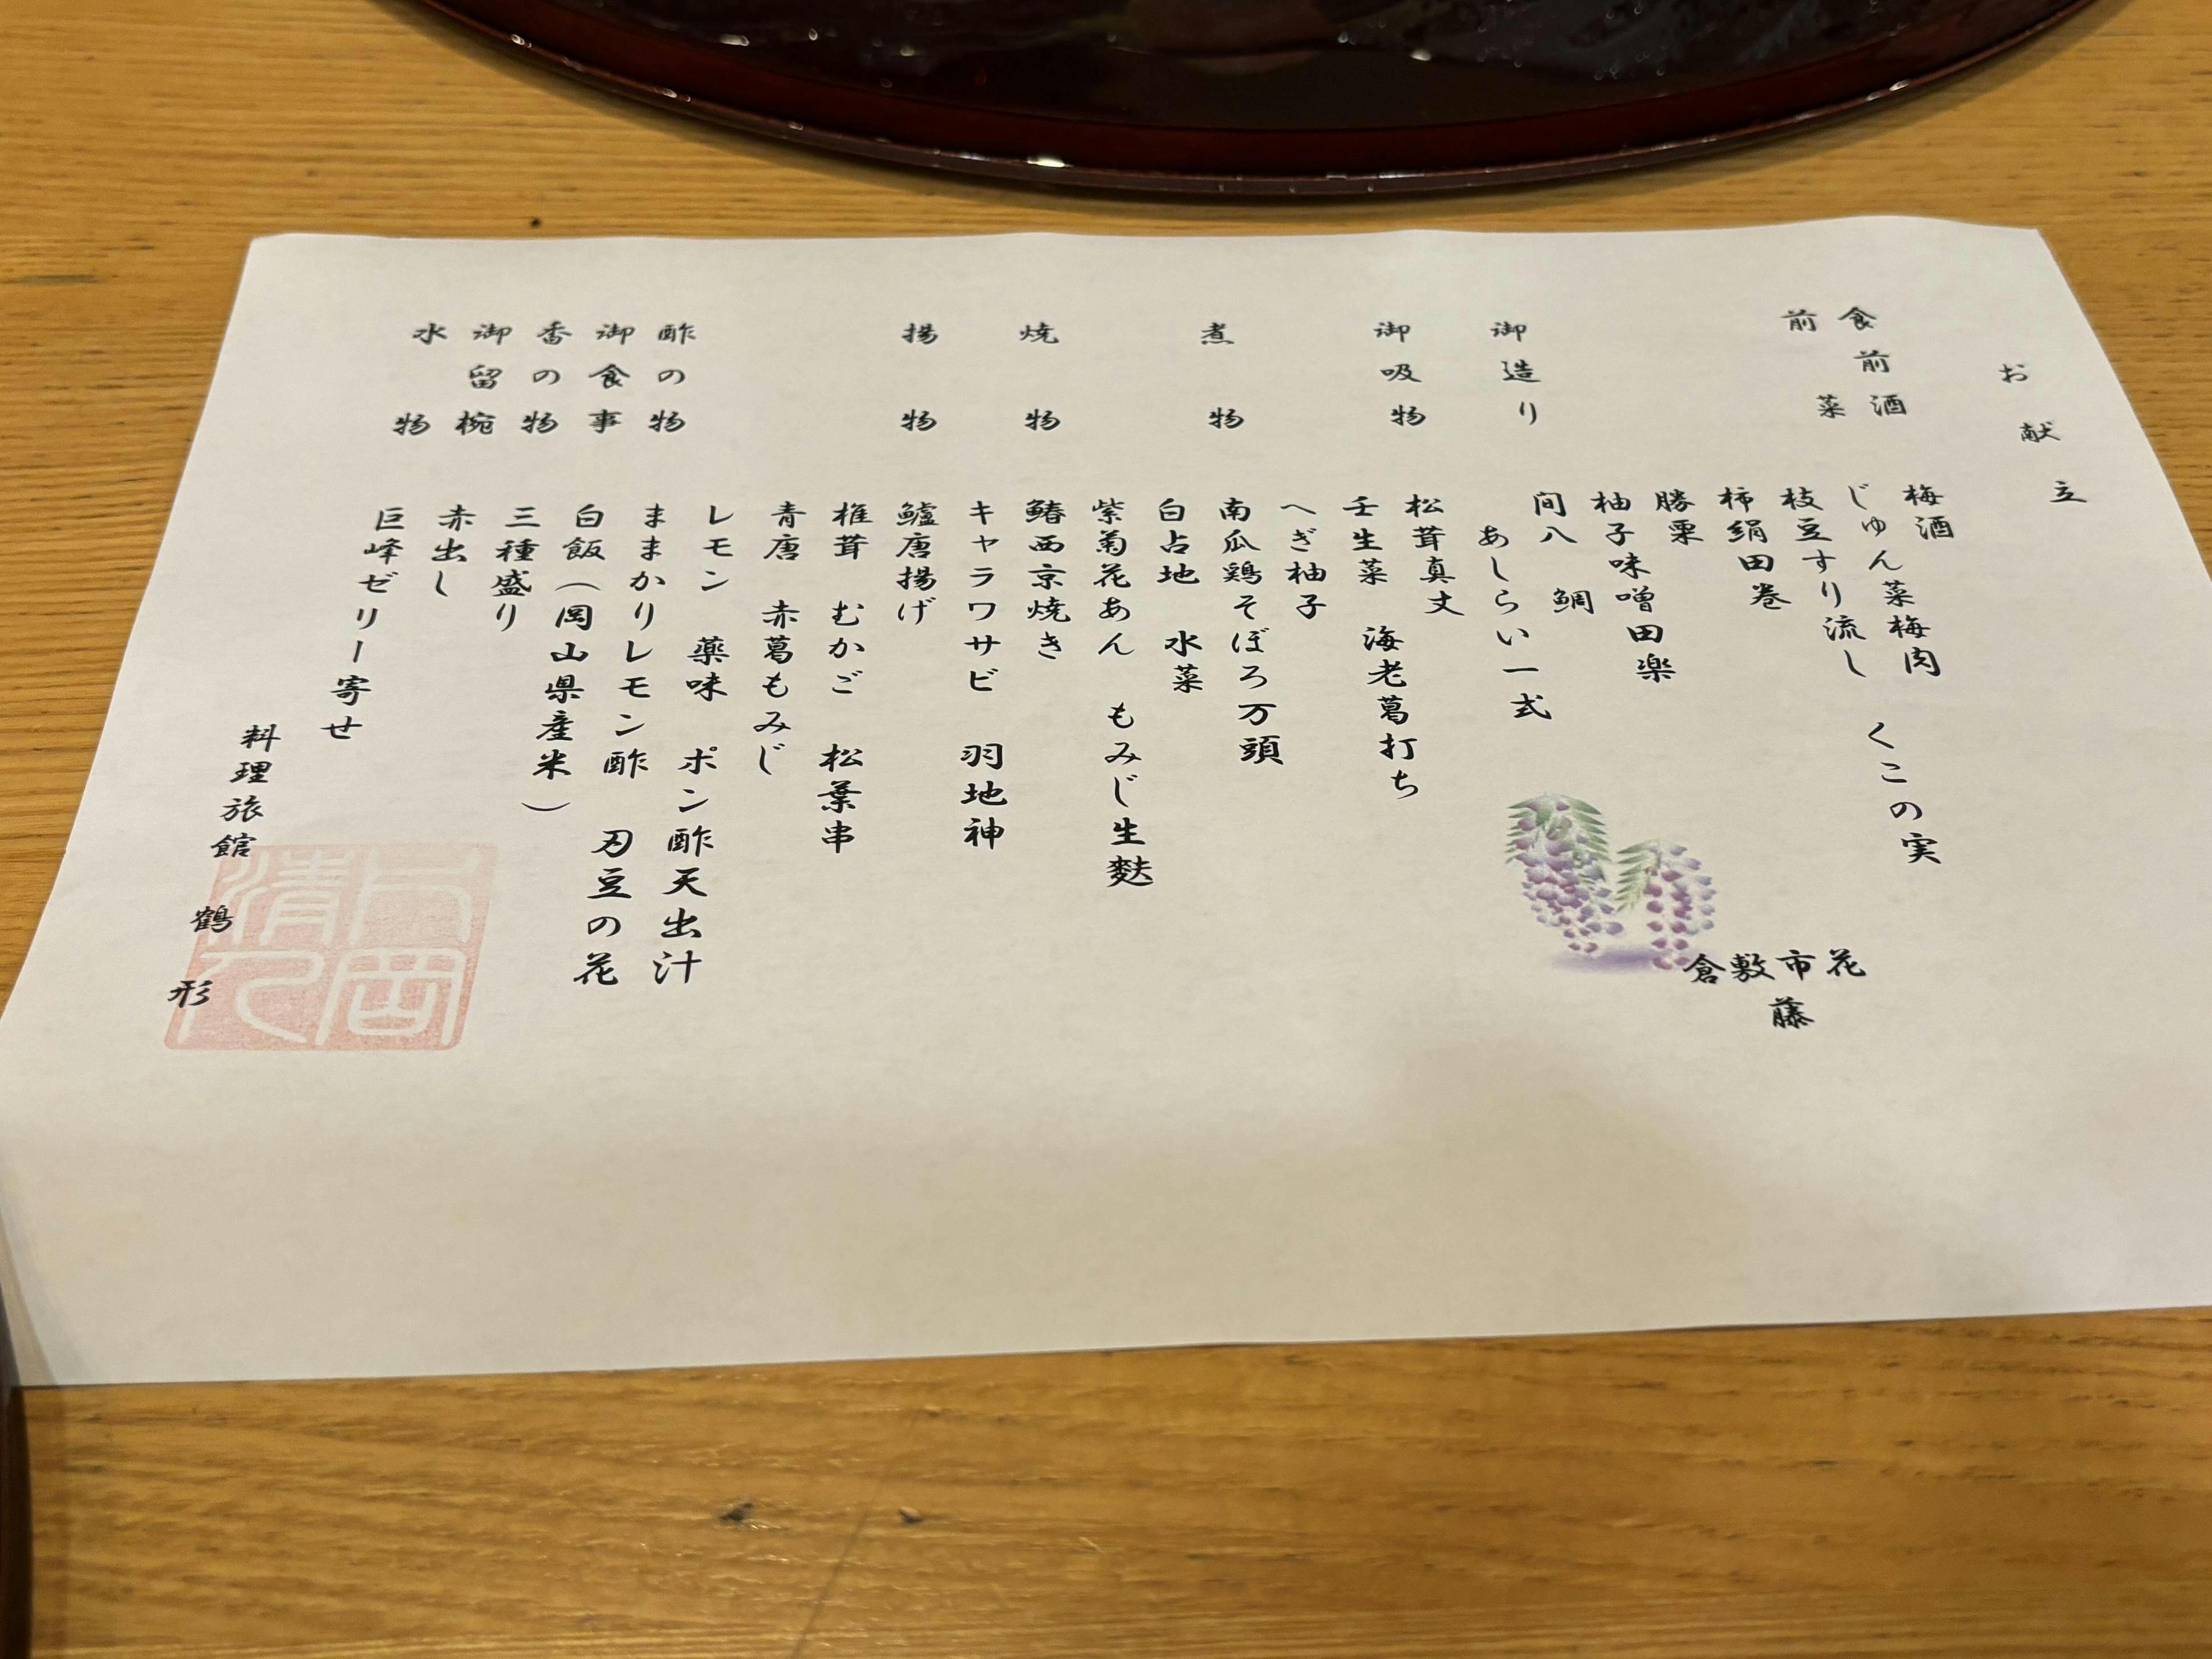 お献立
食前酒 梅酒
前菜 じゅん菜梅肉 くこの実
枝豆すり流し
柿絹田巻
勝栗
柚子味噌田楽
御造り 間八 鯛
あしらい一式
御吸物 松茸真丈
壬生菜 海老葛打ち
へぎ柚子
煮物 南瓜鶏そぼろ万頭
白占地 水菜
紫菊花あん もみじ生麩
焼物 鰆西京焼き
キャラワサビ 羽地神
揚物 鱸唐揚げ
椎茸 むかご 松葉串
青唐 赤葛もみじ
レモン 薬味 ポン酢天出汁
酢の物 ままかりレモン酢 刃豆の花
御食事 白飯(岡山県産米)
香の物 三種盛り
御留椀 赤出し
水物 巨峰ゼリー寄せ
料理旅館 鶴形
倉敷市花
藤